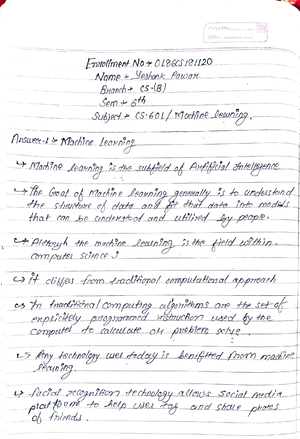 Enrollment No → 0186CS181120
Name → Yeshank Pawar
Branch → CS-(B)
Sem → 6th
Subject → CS-601/ Machine learning.
Answer-1 → Machine Learning
→ Machine learning is the subfield of Artificial Intelligence
→ The Goal of Machine learning generally is to understand
the structure of data and fit that data into models
that can be understood and utilized by people.
→ Although the machine learning is the field within
computer science.
→ it differs from traditional computational approach
→ In traditional computing algorithms are the set of
explicitely programmed instruction used by the
computer to calculate or problem solve
→ Any technology user today is benifitted from machine
learning.
→ facial recognition technology allows social media
platform to help user tag and share photos
of friends.